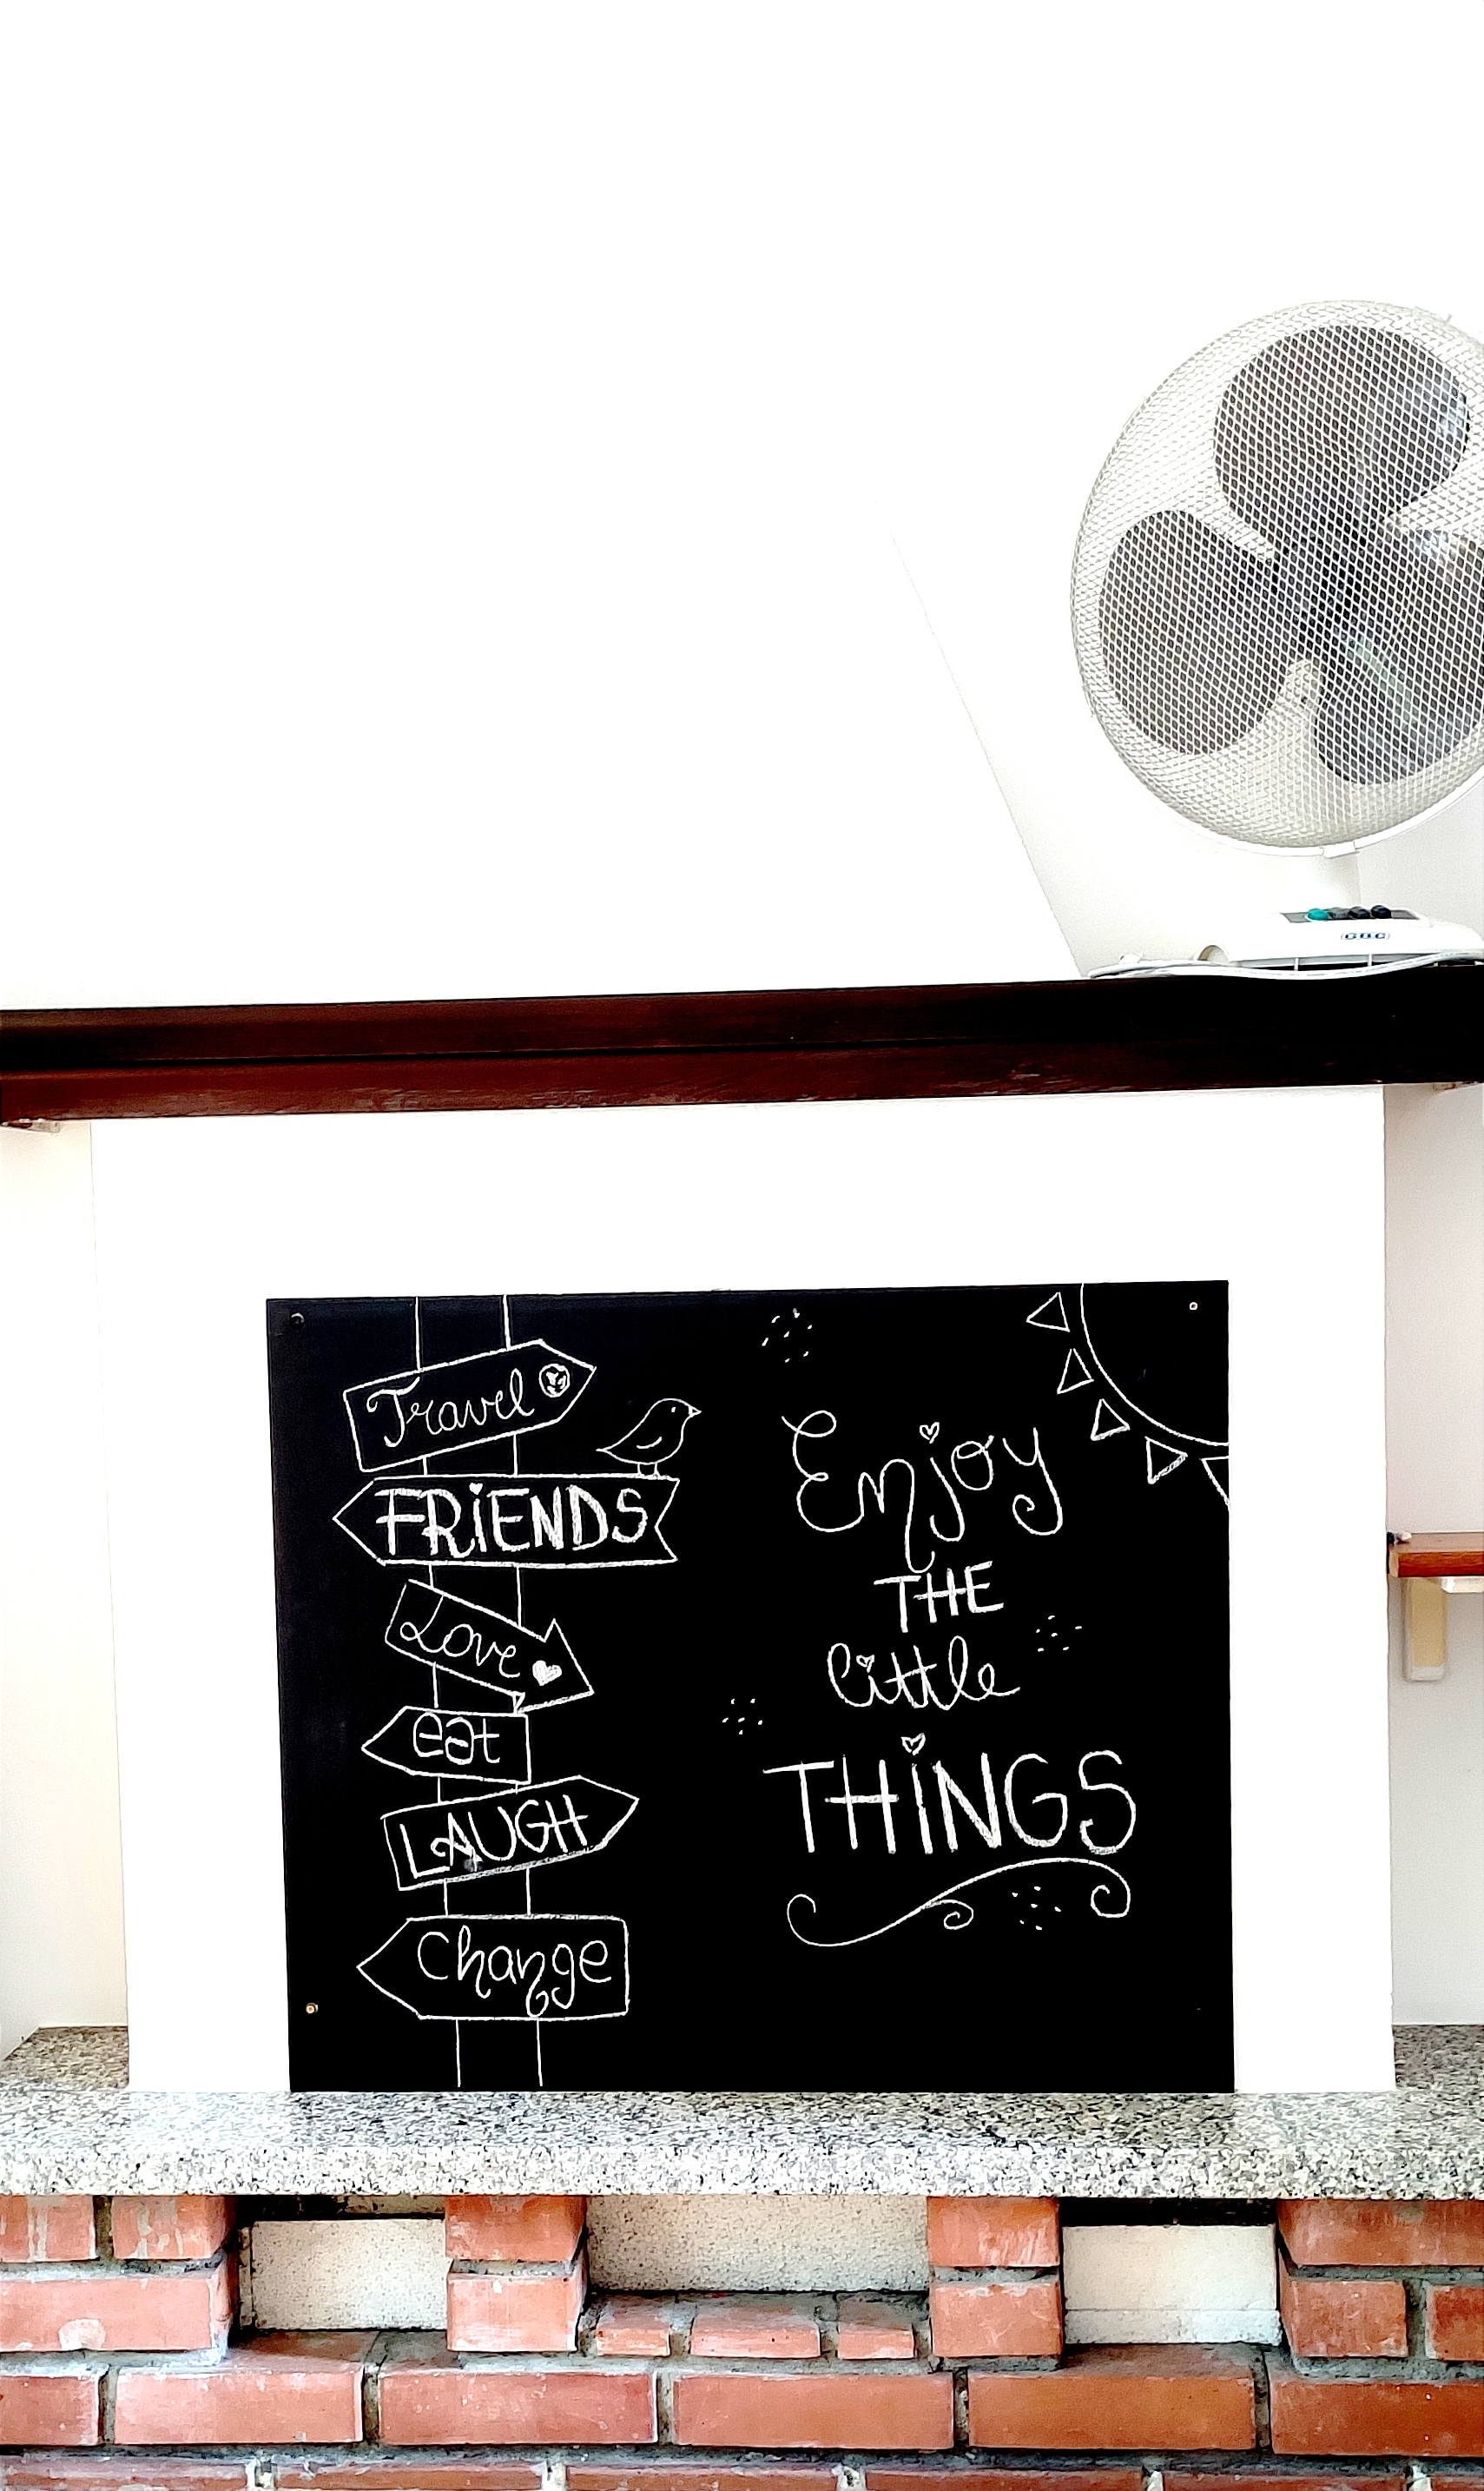 GBC
Travel
FRiENDS
Love
eat
LAUGH
Change
Enjoy
THE
little
THiNGS